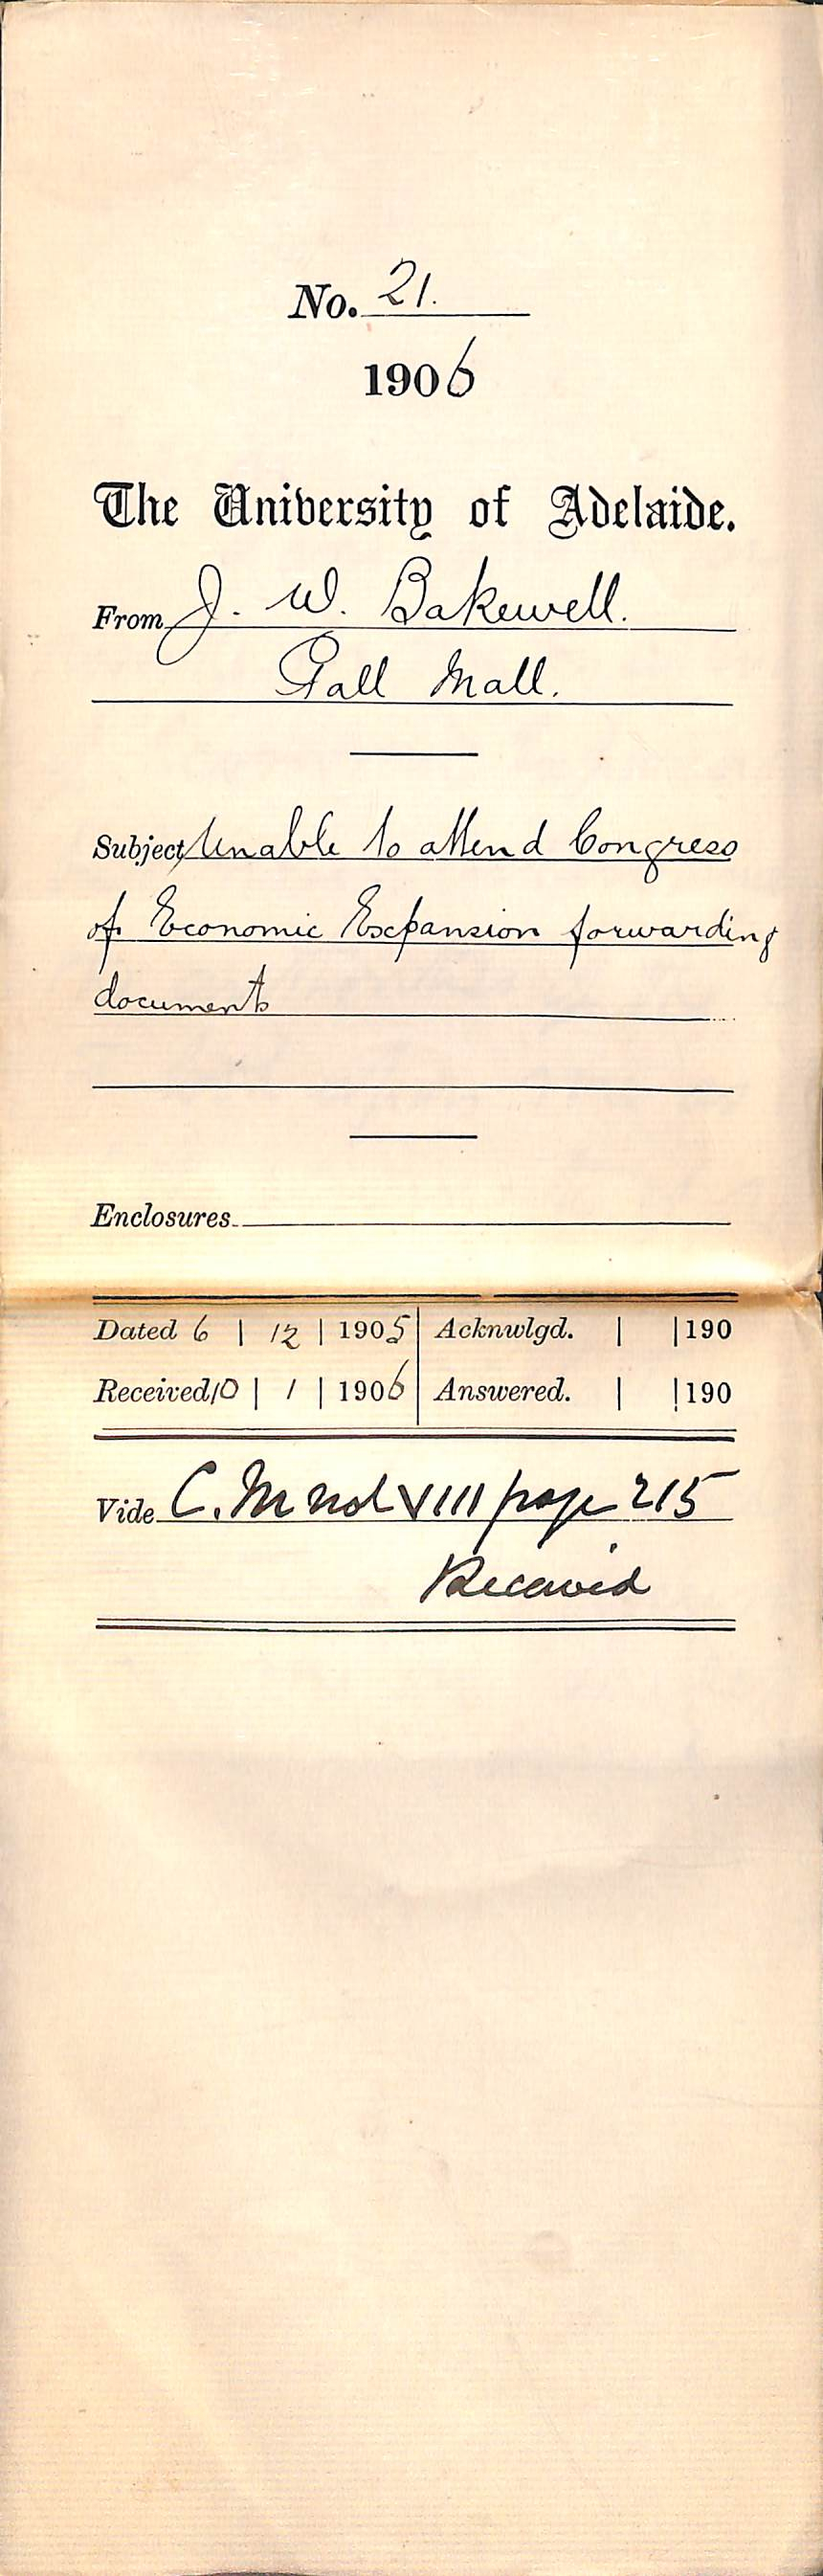 No. 21.
1906
The University of Adelaide.
From J. W. Bakewell.
Pall Mall.
Subject Unable to attend Congress
of Economic Expansion forwarding
documents
Enclosures
Dated 6 | 12 | 1905 | Acknwlgd. | | 190
Received 10 | 1 | 1906 | Answered. | | 190
Vide C. M vol VIII page 215
Received